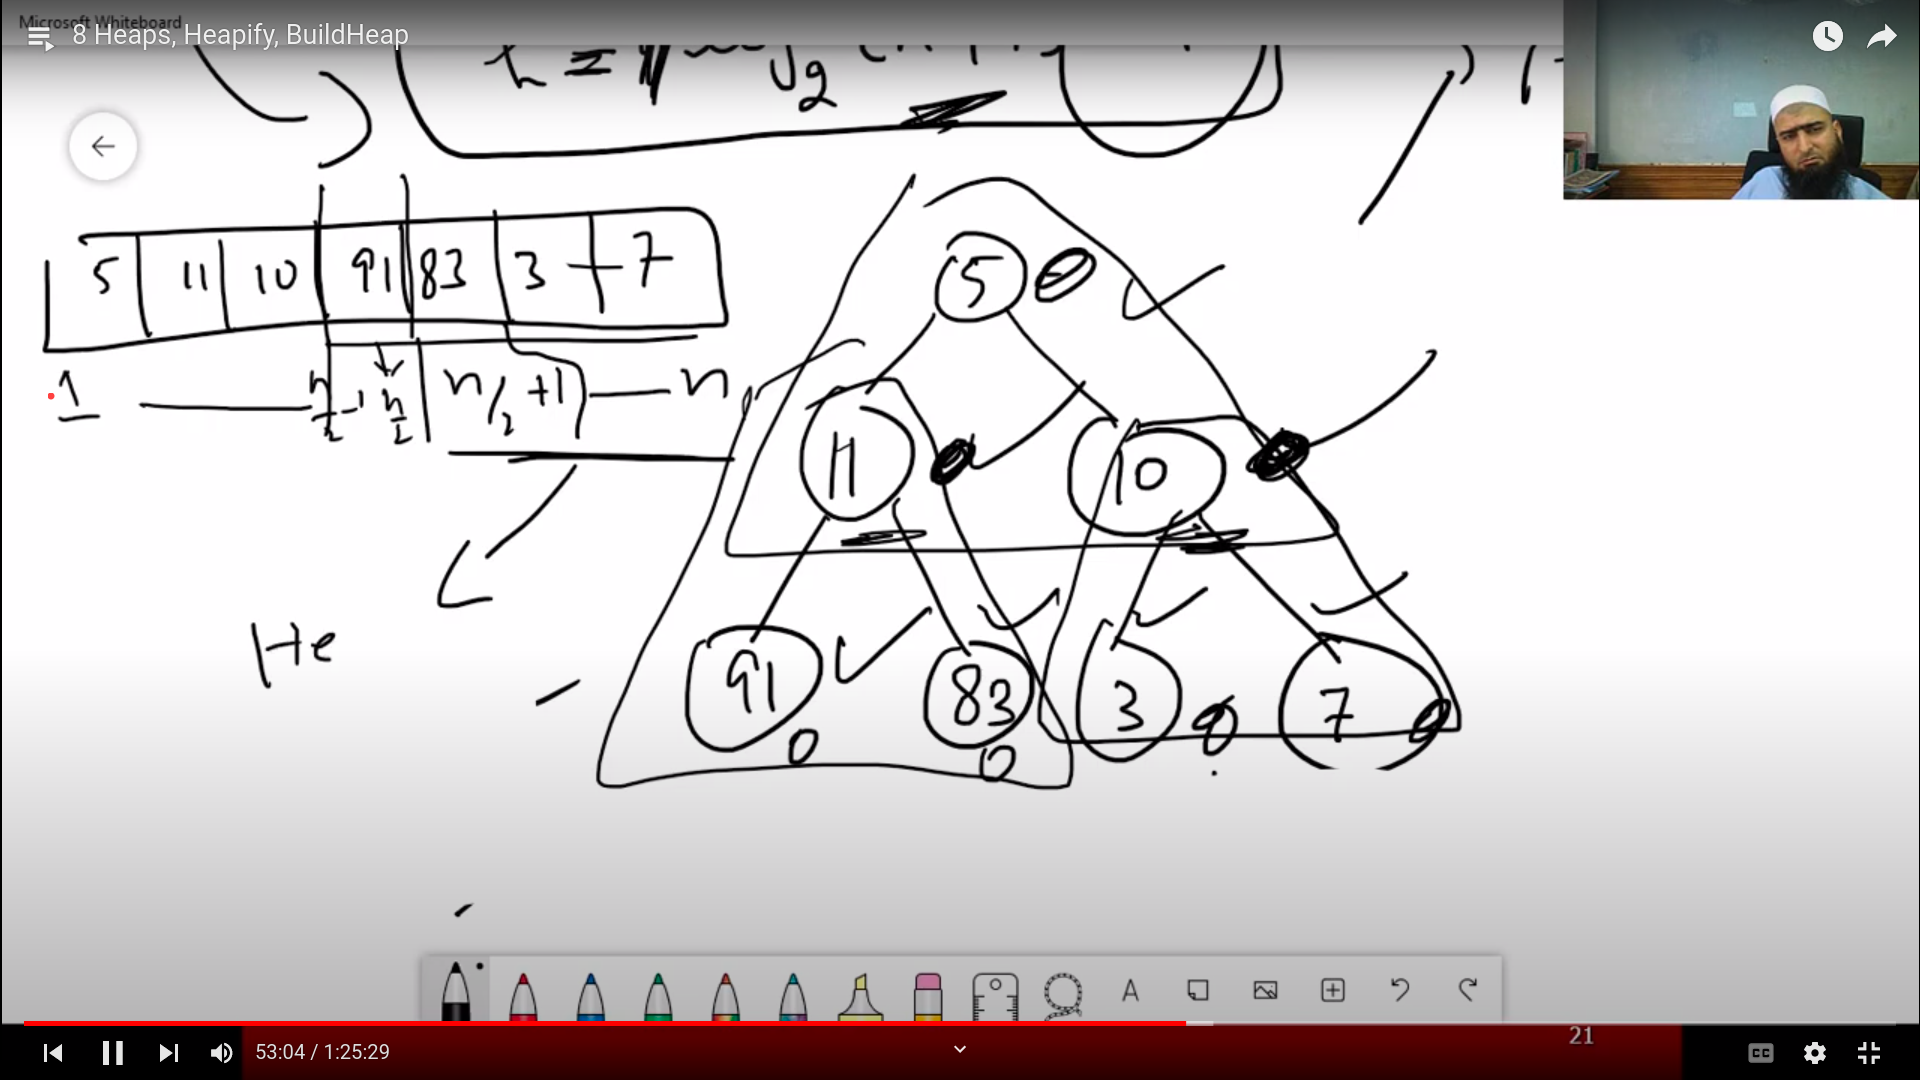 Microsoft Whiteboard
8 Heaps, Heapify, BuildHeap
5 11 10 91 83 3 7
1 n/2-1 n/2 n/2+1 n
5
11 10
91 83 3 7
0 0
He
21
53:04 / 1:25:29
CC